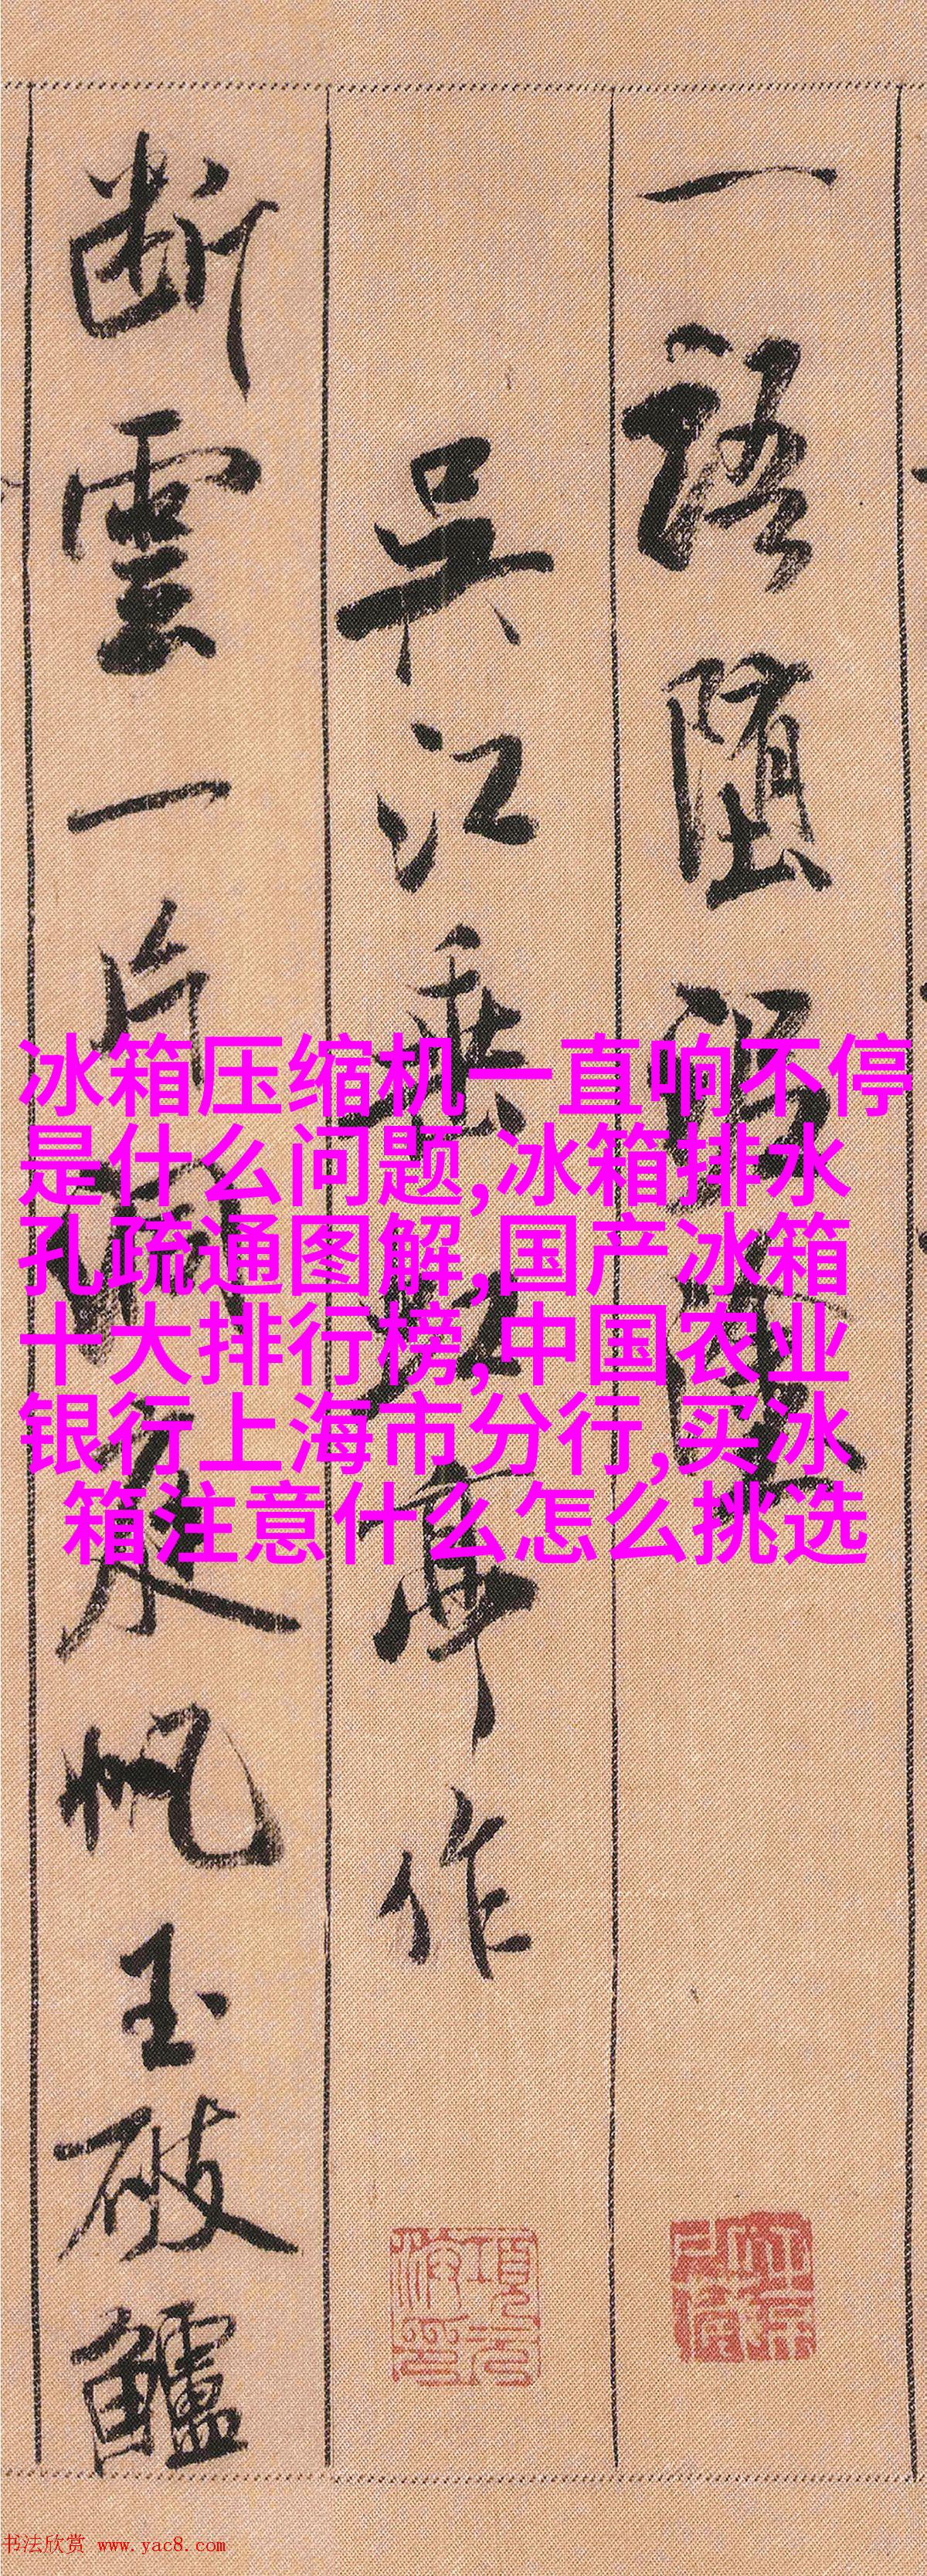 一語墮泥塗
吳江垂虹亭作
斷雲一片洞庭帆玉破鱸
冰箱压缩机一直响不停
是什么问题,冰箱排水
孔疏通图解,国产冰箱
十大排行榜,中国农业
银行上海市分行,买冰
箱注意什么怎么挑选
书法欣赏 www.yac8.com